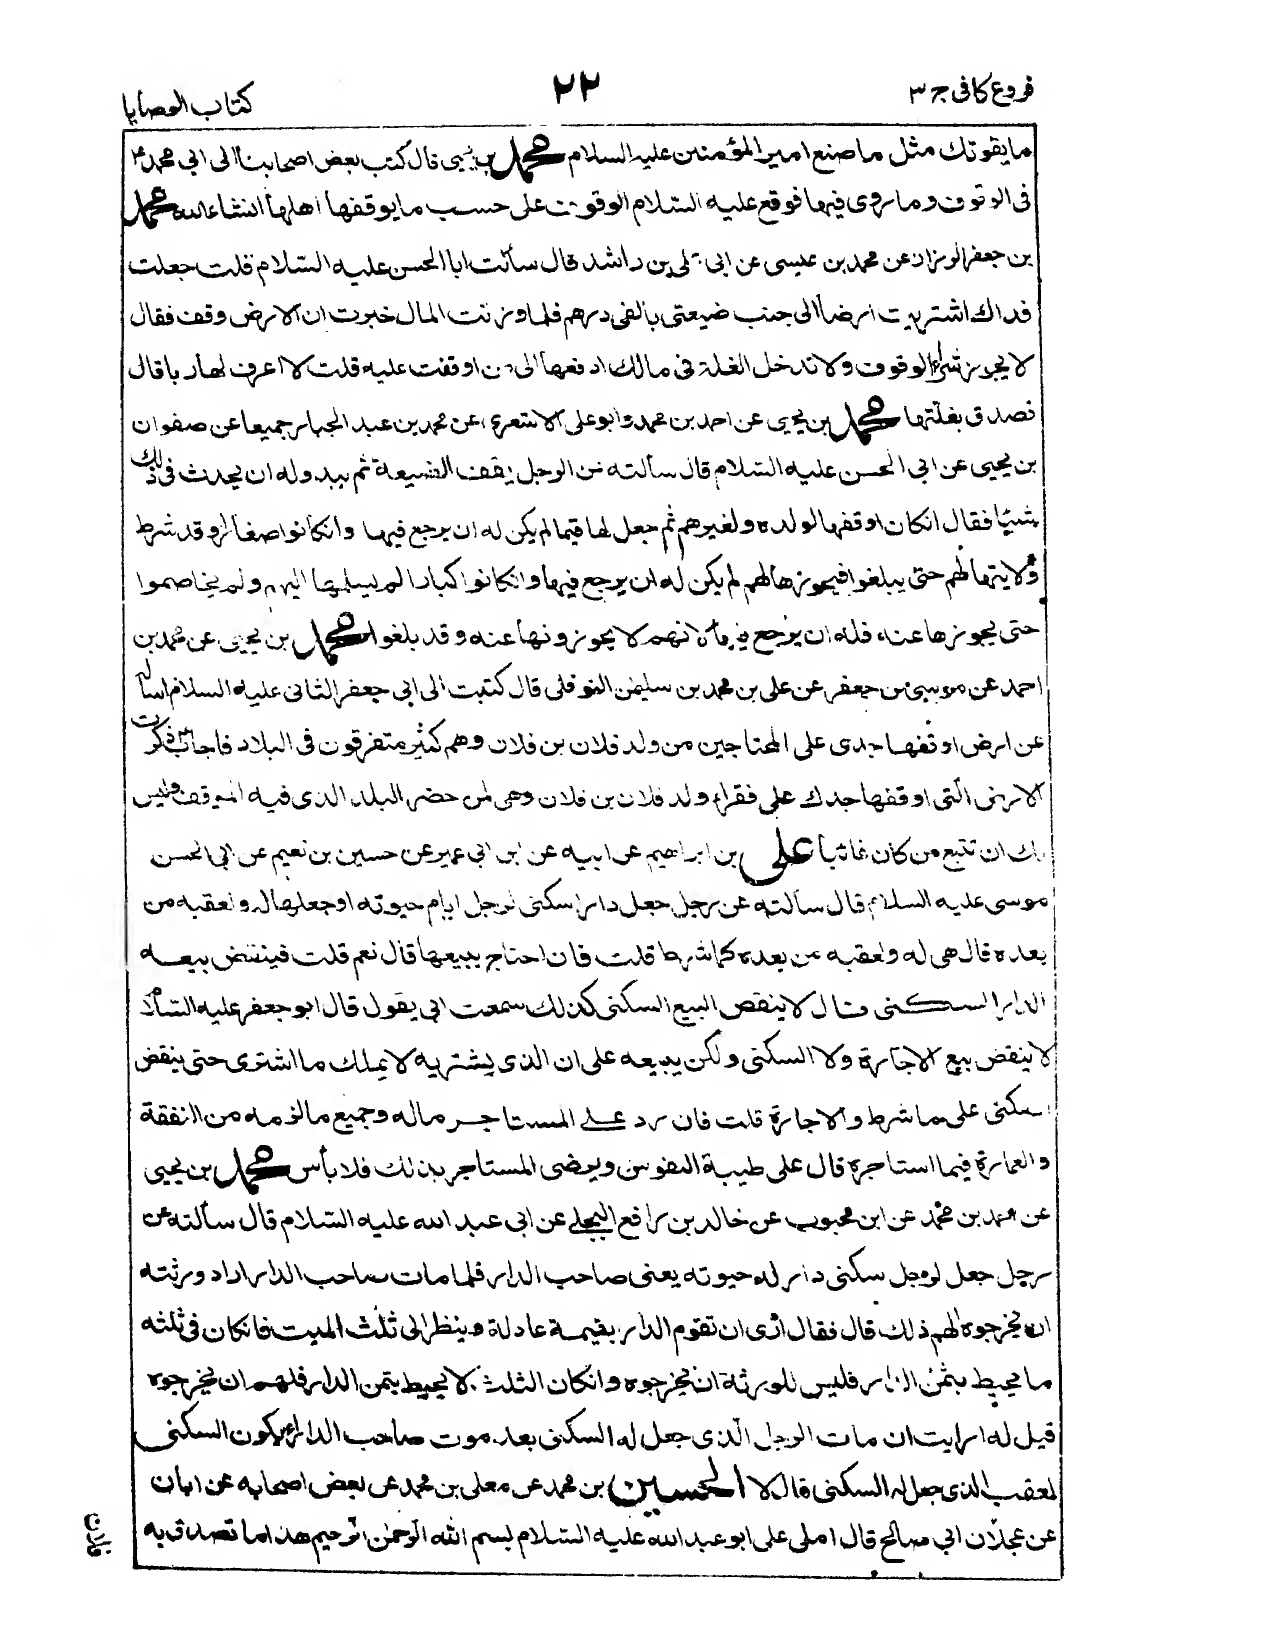 فروع كافى ج ٣
٢٢
كتاب الوصايا
ما يقوتك مثل ما صنع امير المؤمنين عليه السلام محمد بن يحيى قال كتب بعض اصحابنا الى ابى محمد ع
فى الوقوف وما روى فيها فوقع عليه السلام الوقوف على حسب ما يوقفها اهلها انشاء الله محمد
بن جعفر الرزاز عن محمد بن عيسى عن ابى على بن راشد قال سألت ابا الحسن عليه السلام قلت جعلت
فداك اشتريت ارضا الى جنب ضيعتى بالفى درهم فلما وزنت المال خبرت ان الارض وقف فقال
لا يجوز شراء الوقوف ولا تدخل الغلة فى مالك ادفعها الى من اوقفت عليه قلت لا اعرف لها ربا قال
تصدق بغلّتها محمد بن يحيى عن احمد بن محمد وابو على الاشعرى عن محمد بن عبد الجبار جميعا عن صفوان
بن يحيى عن ابى الحسن عليه السلام قال سألته عن الرجل يقف الضيعة ثم يبدو له ان يحدث فى ذلك
شيئا فقال انكان اوقفها لولده ولغيرهم ثم جعل لها قيما لم يكن له ان يرجع فيها وانكانوا صغارا وقد شرط
ولايتها لهم حتى يبلغوا فيحوزها لهم لم يكن له ان يرجع فيها وانكانوا كبارا لم يسلمها اليهم ولم يخاصموا
حتى يحوزها عنه فله ان يرجع فيها لانهم لا يحوزونها عنه وقد بلغوا محمد بن يحيى عن محمد بن
احمد عن موسى بن جعفر عن على بن محمد بن سليمن النوفلى قال كتبت الى ابى جعفر الثانى عليه السلام اسأله
عن ارض اوقفها جدى على المحتاجين من ولد فلان بن فلان وهم كثير متفرقون فى البلاد فاجاب ذكرت
الارض الّتى اوقفها جدك على فقراء ولد فلان بن فلان وهى لمن حضر البلد الذى فيه الموقف وليس
لك ان تتبع من كان غائبا على بن ابراهيم عن ابيه عن ابن ابى عمير عن حسين بن نعيم عن ابى الحسن
موسى عليه السلام قال سألته عن رجل جعل دارا سكنى لرجل ايام حيوته او جعلها له ولعقبه من
بعده قال هى له ولعقبه من بعده كما شرط قلت فان احتاج يبيعها قال نعم قلت فينقض بيعه
الدار السكنى قال لا ينقض البيع السكنى كذلك سمعت ابى يقول قال ابو جعفر عليه السلام
لا ينقض بيع الاجارة ولا السكنى ولكن يبيعه على ان الذى يشتريه لا يملك ما اشترى حتى ينقض
السكنى على ما شرط والاجارة قلت فان رد على المستاجر ماله وجميع ما لزمه من النفقة
والعمارة فيما استاجره قال على طيبة النفوس ويرضى المستاجر بذلك فلا بأس محمد بن يحيى
عن احمد بن محمد عن ابن محبوب عن خالد بن رافع البجلى عن ابى عبد الله عليه السلام قال سألته عن
رجل جعل لرجل سكنى دار له حيوته يعنى صاحب الدار فلما مات صاحب الدار اراد ورثته
ان يخرجوه الهم ذلك قال فقال ارى ان تقوم الدار بقيمة عادلة وينظر الى ثلث الميت فانكان فى ثلثه
ما يحيط بثمن الدار فليس للورثة ان يخرجوه وانكان الثلث لا يحيط بثمن الدار فلهم ان يخرجوه
قيل له ارايت ان مات الرجل الّذى جعل له السكنى بعد موت صاحب الدار يكون السكنى
لعقب الذى جعل له السكنى قال لا الحسين بن محمد عن معلى بن محمد عن بعض اصحابه عن ابان
عن عجلان ابى صالح قال املى على ابو عبد الله عليه السلام بسم الله الرحمن الرحيم هذا ما تصدق به
فلان